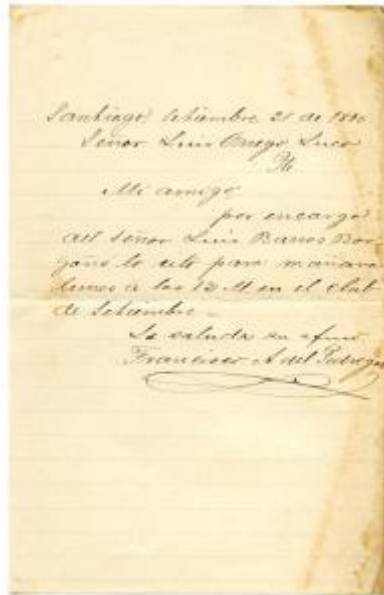 Santiago, Setiembre 21 de 1890
Señor Luis Orrego Luco
Pte.
Mi amigo
por encargo
del señor Luis Barros Bor
goño lo cito para mañana
lunes a las 12 M en el club
de Setiembre.
Le saluda su afmo.
Francisco A del Pedregal